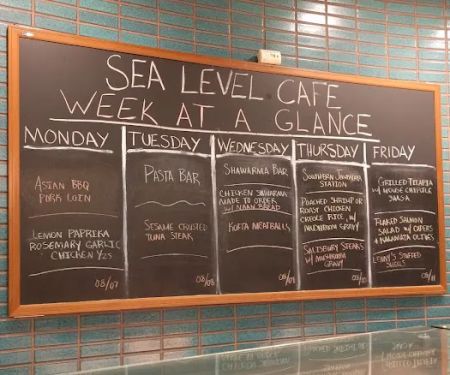 SEA LEVEL CAFE
WEEK AT A GLANCE
MONDAY
ASIAN BBQ
PORK LOIN
LEMON PAPRIKA
ROSEMARY GARLIC
CHICKEN 1/25
08/07
TUESDAY
PASTA BAR
SESAME CRUSTED
TUNA STEAK
08/08
WEDNESDAY
SHAWARMA BAR
CHICKEN SHWARMA
MADE TO ORDER
W/ NAAN BREAD
KOFTA MEATBALLS
08/09
THURSDAY
SOUTHERN
STATION
POACHED SHRIMP OR
ROAST CHICKEN
CREOLE RICE, W/
MUSHROOM GRAVY
SALISBURY STEAKS
W/ MUSHROOM GRAVY
08/10
FRIDAY
GRILLED TILAPIA
W/ HOUSE CHIPOTLE
SALSA
FLAKED SALMON
SALAD W/ CAPERS
& KALAMATA OLIVES
LENNY'S STUFFED
SHELLS
08/11